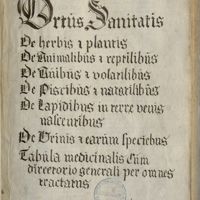 Ortus Sanitatis
De herbis ⁊ plantis
De Animalibus ⁊ reptilibus
De Auibus ⁊ volatilibus
De Piscibus ⁊ natatilibus
De Lapidibus in terre venis
nascentibus
De Urinis ⁊ earum speciebus
Tabula medicinalis Cum
directorio generali per omnes
tractatus